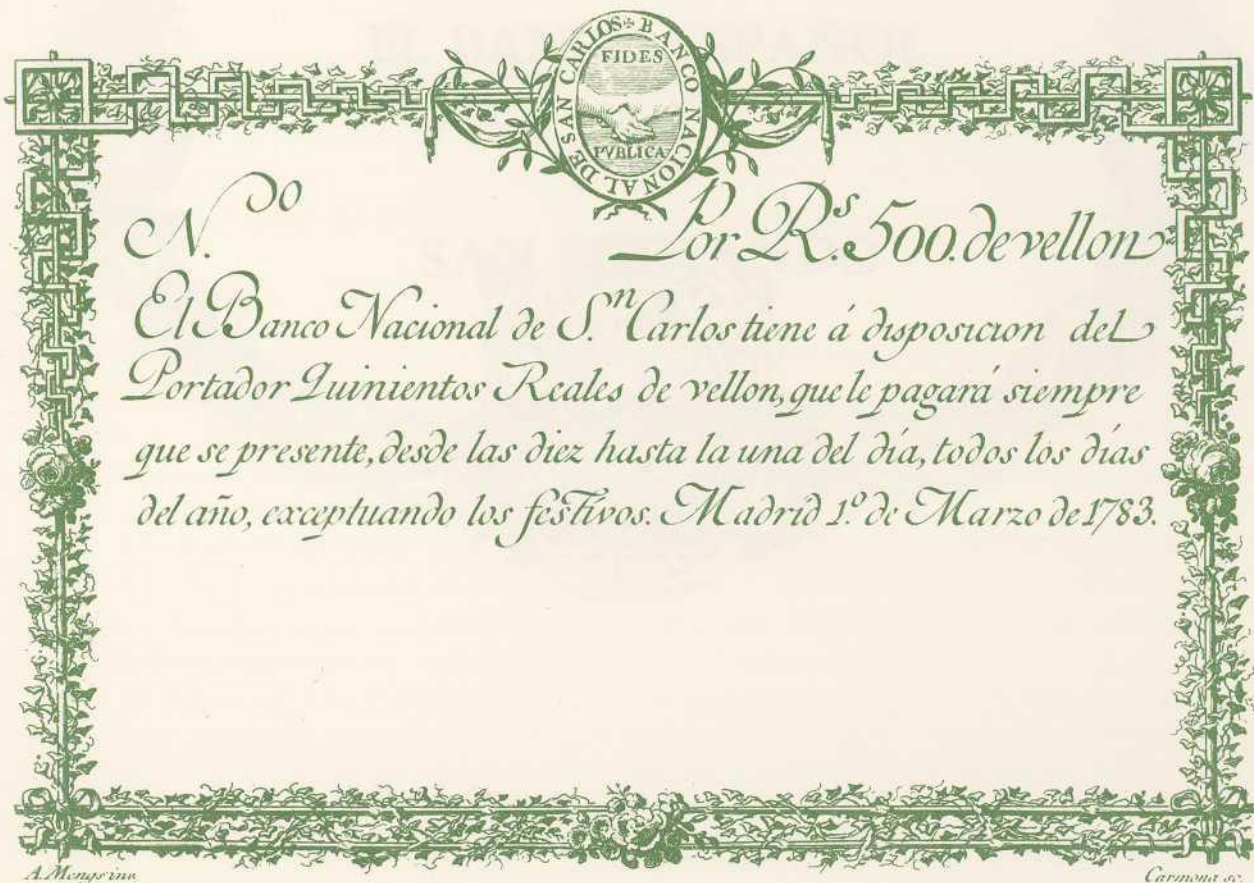 BANCO NACIONAL DE SAN CARLOS
FIDES
PVBLICA
N.º
Por R.s 500. de vellon
El Banco Nacional de S.n Carlos tiene á disposicion del
Portador Quinientos Reales de vellon, que le pagará siempre
que se presente, desde las diez hasta la una del día, todos los días
del año, exceptuando los festivos. Madrid 1.º de Marzo de 1783.
A. Mengs inv.
Carmona sc.